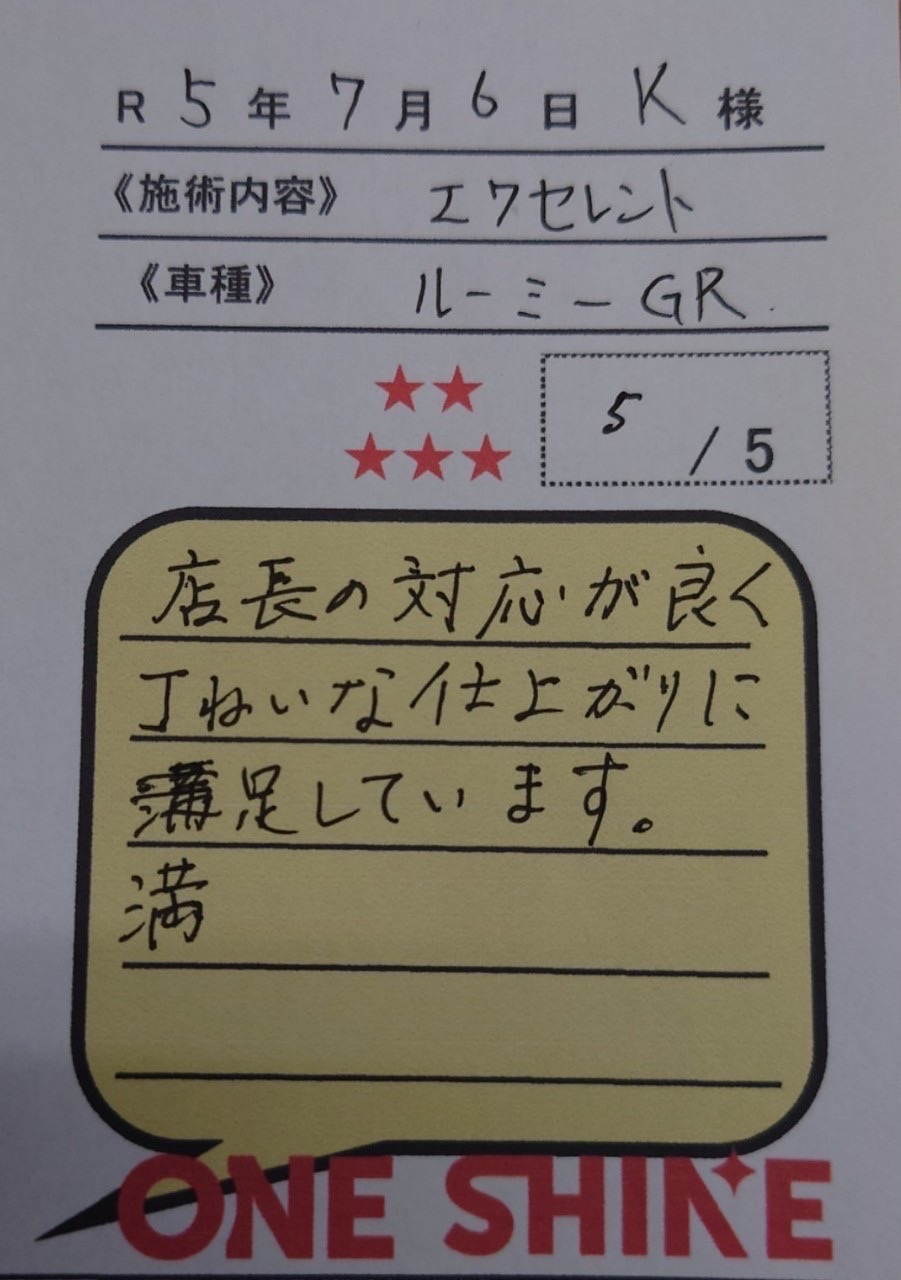 R 5年 7月 6日 K 様
《施術内容》 エクセレント
《車種》 ルーミーGR
★★
★★★
5 / 5
店長の対応が良く
丁ねいな仕上がりに
満足しています。
満
ONE SHINE